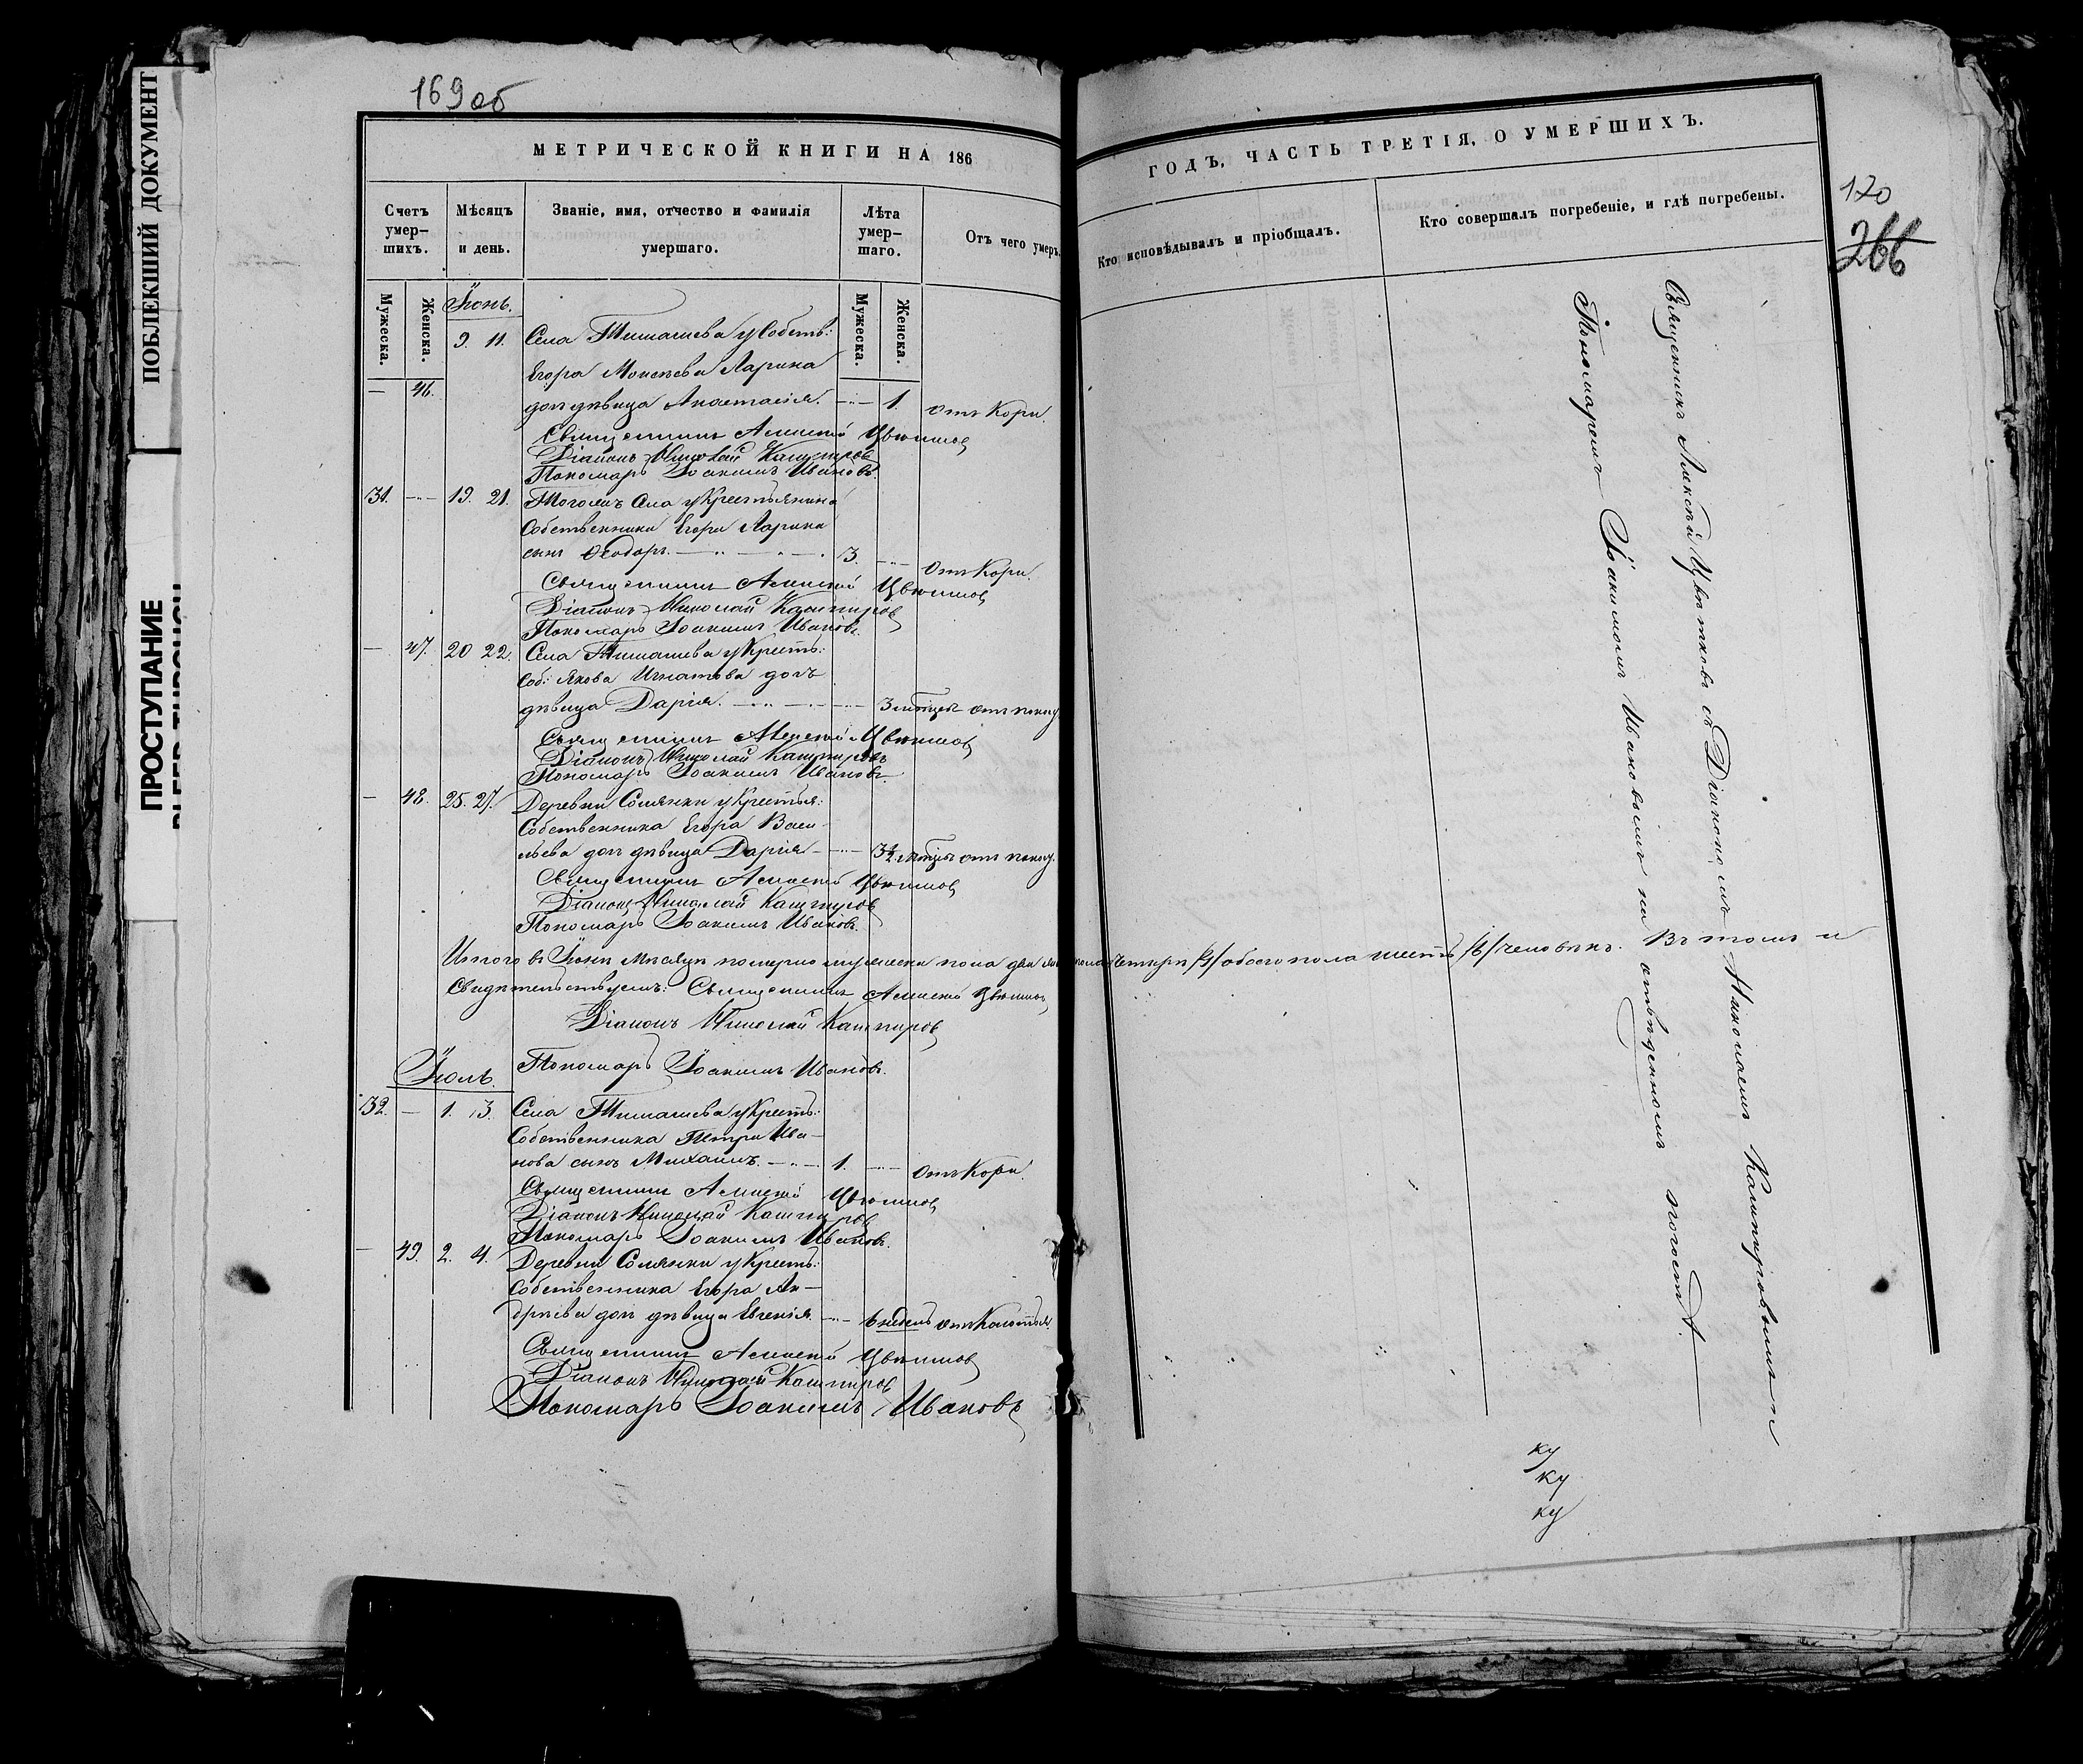 ПОБЛЕКШИЙ ДОКУМЕНТ
ПРОСТУПАНИЕ
169об
МЕТРИЧЕСКОЙ КНИГИ НА 186
Счетъ умер–шихъ.
Мѣсяцъ и день.
Званіе, имя, отчество и фамилія умершаго.
Лѣта умер–шаго.
Отъ чего умеръ.
Мужеска.
Женска.
Мужеска.
Женска.
Іюнь.
9. 11. Села Тимашева у Собств:
Егора Моисеева Ларина
— 46. дочь дѣвица Анастасія. — 1. отъ Кори.
Священникъ Алексѣй Цвѣтковъ
Діаконъ Николай Кашпировъ
Пономарь Іоакимъ Ивановъ.
31. — 19. 21. Тогожъ Села у Крестьянина
Собственника Егора Ларина
сынъ Ѳеодоръ. — 3. — Отъ Кори.
Священникъ Алексѣй Цвѣтковъ
Діаконъ Николай Кашпировъ
Пономарь Іоакимъ Ивановъ.
— 47. 20 22. Села Тимашева у Крест:
Соб: Якова Игнатова дочь
дѣвица Дарія. — 3 мѣсяц. отъ поносу
Священникъ Алексѣй Цвѣтковъ
Діаконъ Николай Кашпировъ
Пономарь Іоакимъ Ивановъ.
— 48. 25. 27. Деревни Солянки у Крестья:
Собственника Егора Васи–
льева дочь дѣвица Дарія — 3½ мѣсяц. отъ поносу.
Священникъ Алексѣй Цвѣтковъ
Діаконъ Николай Кашпировъ
Пономарь Іоакимъ Ивановъ.
Итого въ Іюнѣ мѣсяцѣ померло мужеска пола два
Свидѣтельствуемъ: Священникъ Алексѣй Цвѣтковъ
Діаконъ Николай Кашпировъ
Пономарь Іоакимъ Ивановъ.
Іюль.
32. — 1. 3. Села Тимашева у Крест:
Собственника Петра Ива–
нова сынъ Михаилъ. — 1. — Отъ Кори.
Священникъ Алексѣй Цвѣтковъ
Діаконъ Николай Кашпировъ
Пономарь Іоакимъ Ивановъ.
— 49. 2. 4. Деревни Солянки у Крест:
Собственника Егора Ан–
дреева дочь дѣвица Евгенія. — 6 недѣль
Священникъ Алексѣй Цвѣтковъ
Діаконъ Николай Кашпировъ
Пономарь Іоакимъ Ивановъ
ГОДЪ, ЧАСТЬ ТРЕТІЯ, О УМЕРШИХЪ.
Кто исповѣдывалъ и пріобщалъ.
Кто совершалъ погребеніе, и гдѣ погребены.
170
266
Священникъ Алексѣй Цвѣтковъ съ Діакономъ Николаемъ Кашпировымъ и
Пономаремъ Іоакимомъ Ивановымъ на отведенномъ погостѣ.
пола четыри /4/ обоего пола шесть /6/ человѣкъ. Въ томъ и
ку
ку
ку